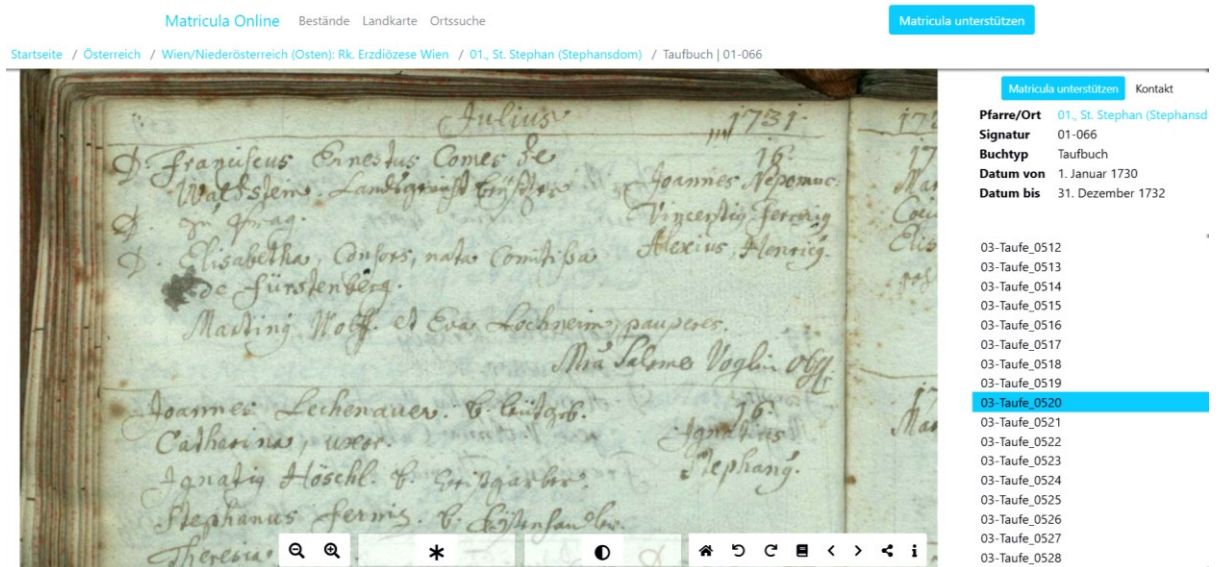 Matricula Online Bestände Landkarte Ortssuche
Matricula unterstützen
Startseite / Österreich / Wien/Niederösterreich (Osten): Rk. Erzdiözese Wien / 01., St. Stephan (Stephansdom) / Taufbuch | 01-066
Julius 1731.
D. Franciscus Ernestus Comes de
Waldstein. Landts
D. in Prag.
D. Elisabetha, Consors, nata Comitissa
de Fürstenberg.
Martinq Wolff. et Eva Lochnerin, pauperes.
Mria Salome Voglin obst.
16.
Joannes Nepomuc.
Vincentiq Ferreriq
Alexius, Henricq.
Joannes Lechenauer. b.
Catharina, uxor.
Ignatiq Höschl. b.
Stephanus b.
Theresia
16.
Ignatius
Stephanq.
Matricula unterstützen Kontakt
Pfarre/Ort 01., St. Stephan (Stephansd
Signatur 01-066
Buchtyp Taufbuch
Datum von 1. Januar 1730
Datum bis 31. Dezember 1732
03-Taufe_0512
03-Taufe_0513
03-Taufe_0514
03-Taufe_0515
03-Taufe_0516
03-Taufe_0517
03-Taufe_0518
03-Taufe_0519
03-Taufe_0520
03-Taufe_0521
03-Taufe_0522
03-Taufe_0523
03-Taufe_0524
03-Taufe_0525
03-Taufe_0526
03-Taufe_0527
03-Taufe_0528